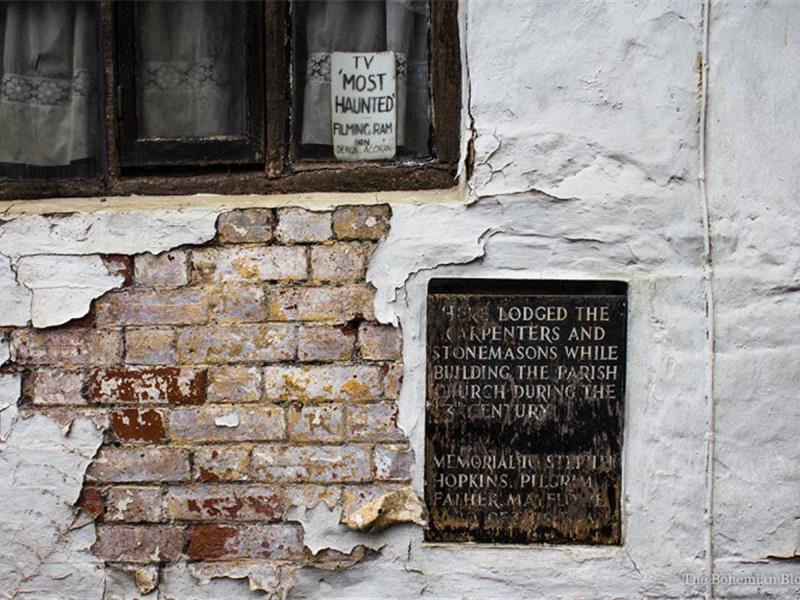 TV
'MOST
HAUNTED'
FILMING RAM
INN
DEREK ACORAH
HERE LODGED THE
CARPENTERS AND
STONEMASONS WHILE
BUILDING THE PARISH
CHURCH DURING THE
CENTURY
MEMORIAL TO STEPHEN
HOPKINS, PILGRIM
FATHER, MAYFLOWER
The Bohemian Blo